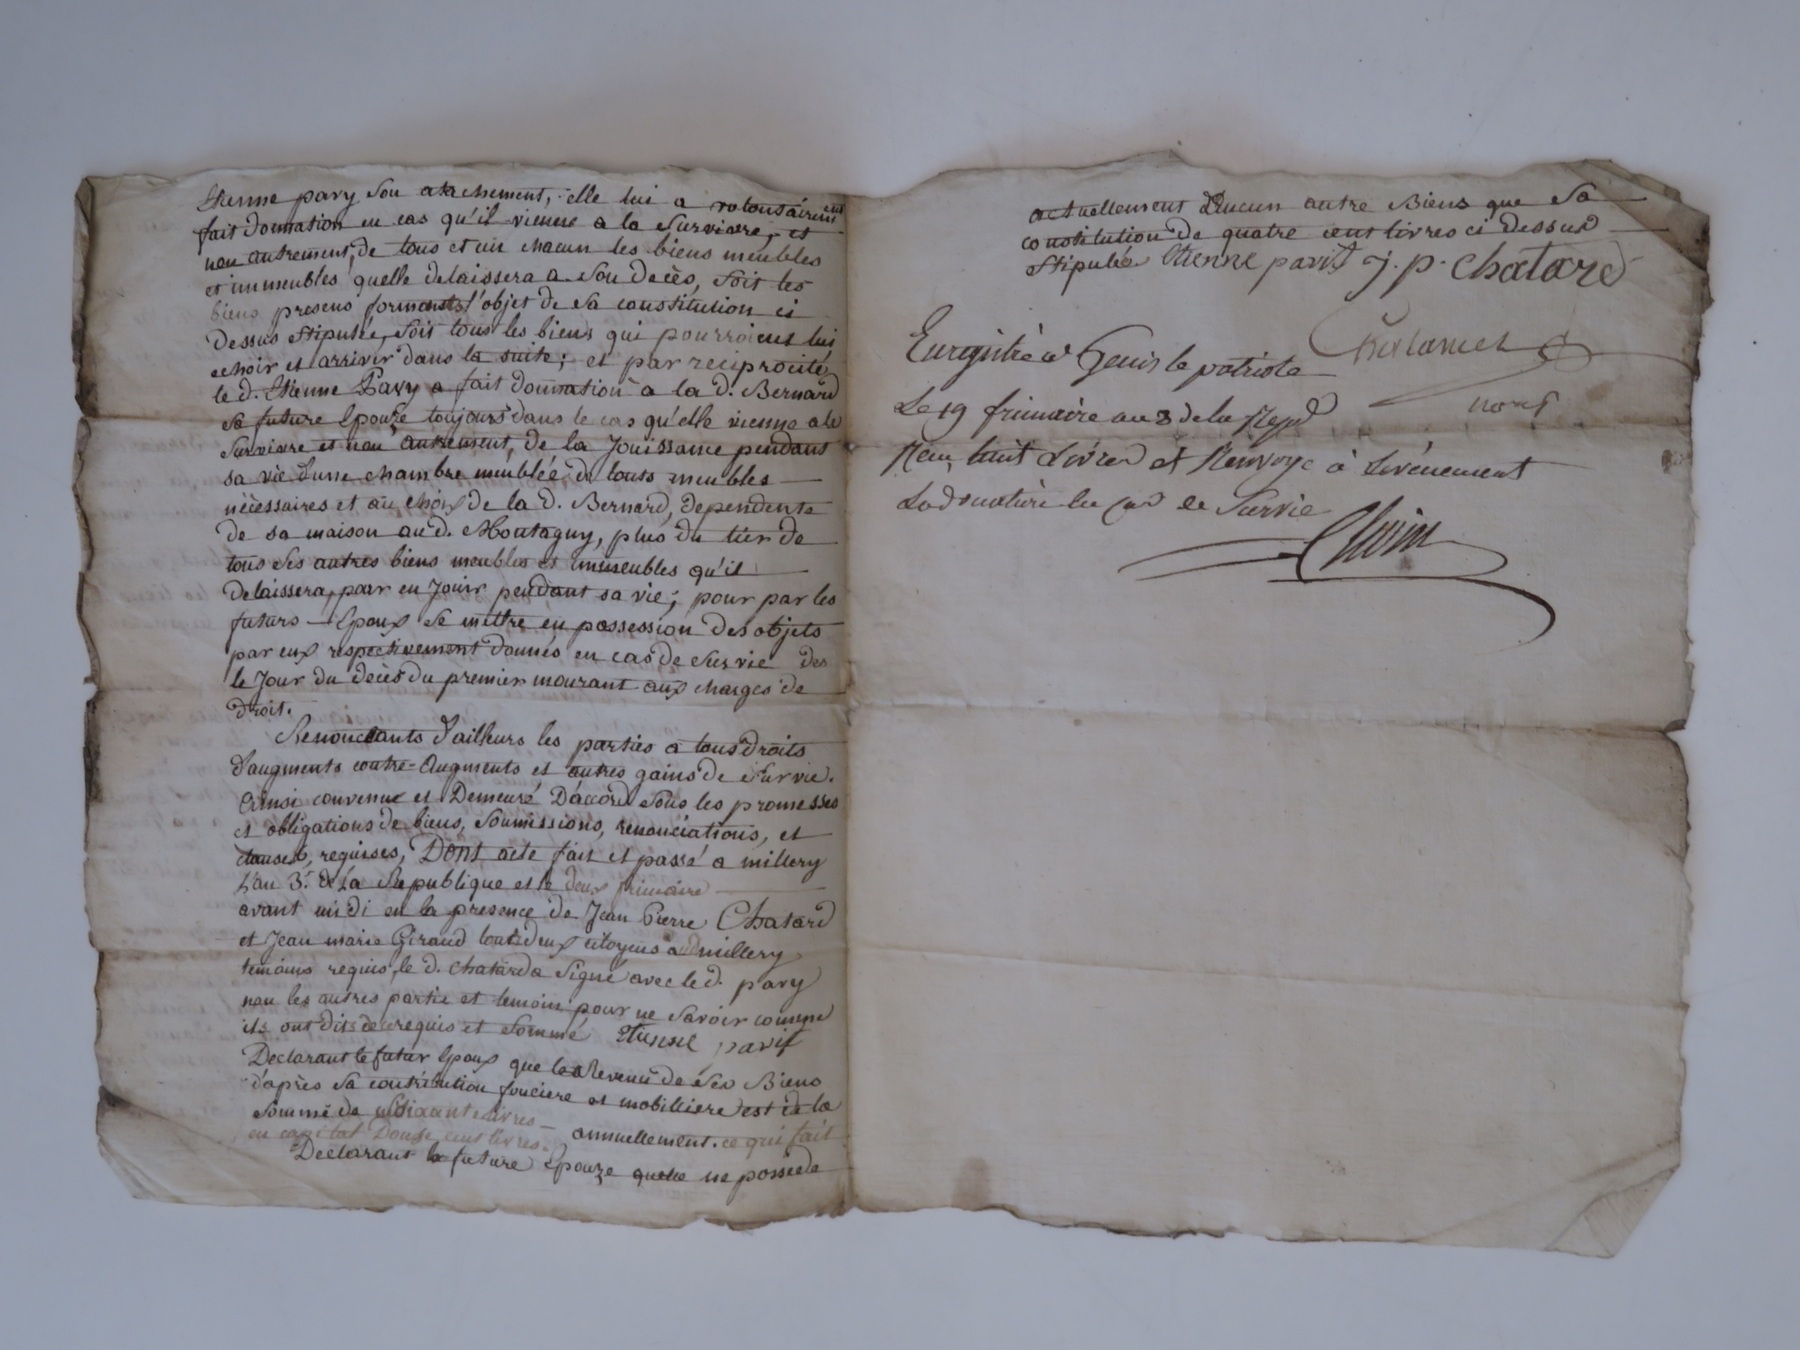 Etienne pavy Son atachement, elle lui a volontairement
fait donnation en cas qu'il vienne a la Survivre, et
non autrement, de tous et un chacun les biens meubles
et immeubles quelle delaissera a Son Decès, soit les
biens presens formants l'objet de Sa constitution ci
Dessus Stipulée, soit tous les biens qui pourroient lui
echoir et arriver dans la suite; et par reciprocité
le d. Etienne Pavy a fait donnation a la d. Bernard
Sa future Epouze toujours dans le cas qu'elle vienne a le
Survivre et non autrement, de la Jouissance pendant
sa vie d'une chambre meublée de touts meubles
nécessaires et au choix de la d. Bernard, Dependente
de sa maison au d. Montagny, plus du tier de
tous Ses autres biens meubles et immeubles qu'il
Delaissera, pour en Jouir pendant sa vie; pour par les
futurs Epoux Se mettre en possession Des objets
par eux respectivement donnés en cas de Survie des
le Jour du decès du premier mourant aux charges de
droit.
Renonceants d'ailleurs les parties a tous droits
d'augments contre-augments et autres gains de Survie.
Ainsi convenue et Demeuré D'accord Sous les promesses
et obligations de biens, Soumissions, renonciations, et
clauses, requises, Dont acte fait et passé a millery
L'an 3.e de La Republique et le deux frimaire
avant midi en la presence de Jean Pierre Chatard
et Jean marie Giraud tout deux citoyens a d millery
temoins requis, le d. Chatard a Signé avec le d. pavy
non les autres partie et temoin pour ne Savoir comme
ils ont dits de ce requis et Sommé Etienne pavit
Declarant le futur Epoux que le Revenu de Ses Biens
d'après Sa contribution fonciere et mobilliere est de la
Somme de soixante livres annuellement. ce qui fait
en capital Douze cent livres.
Declarant la future Epouze quelle ne possede
actuellement D'aucun autre Biens que Sa
constitution de quatre cent livres ci Dessus
Stipulée Etienne pavit j. p. chatard
Enregistré a Genis le patriote
not.
Le 19 frimaire an 3 de la Rep.
Reçu huit Livres et Renvoyé à Levénement
La donation en cas de Survie